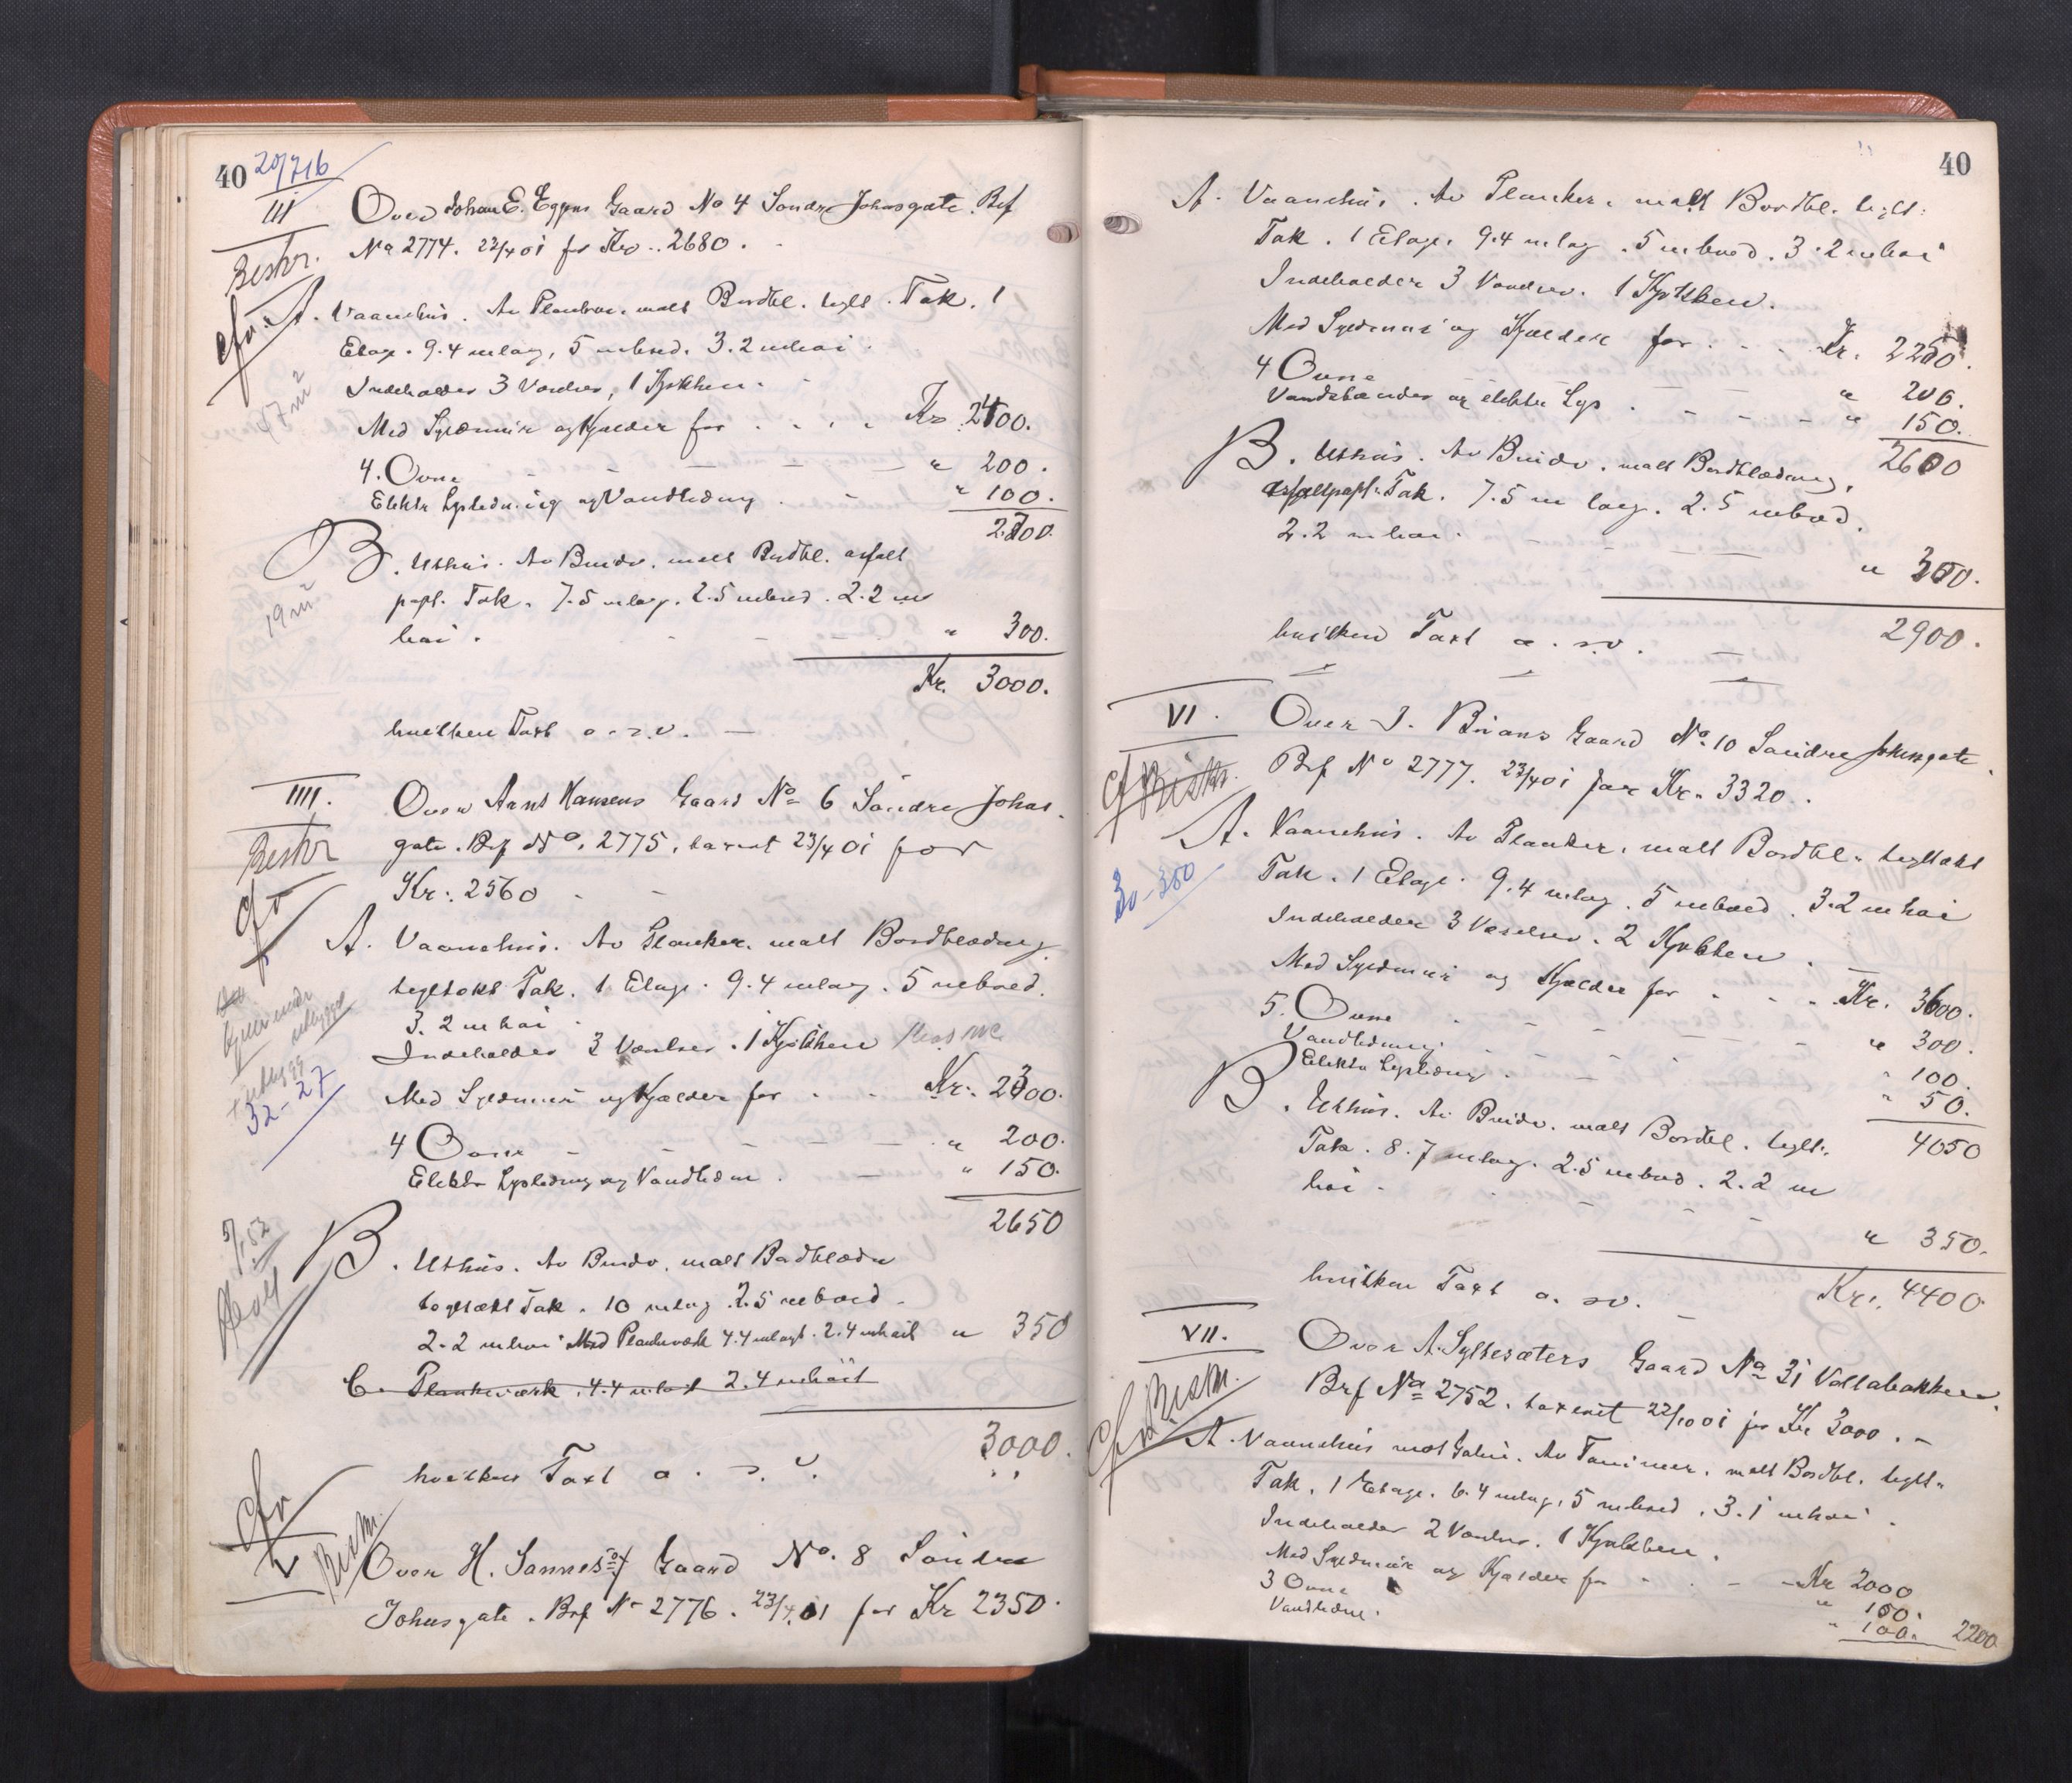 40 20/7 16
III Over Johan E. Eggens Gaard No 4 Søndre Johansgate. Brf
Beskr. No 2774. 23/4 01 for Kr. 2680.
cfr. A. Vaanehus. Av Planker. malt Bordkl. teglt. Tak. 1
Etage. 9.4 m lag, 5 m bred. 3.2 m høi.
47 m²
Indeholder 3 Værelser, 1 Kjøkken.
Med Syldmur og Kjælder for Kr. 2400.
4. Ovne " 200.
Elektr Lysledning og Vandledning " 100.
2700.
B. Uthus. Av Bindv. malt Bordkl. asfalt
19 m²
papt. Tak. 7.5 m lag. 2.5 m bred. 2.2 m
høi. " 300.
Kr. 3000.
hvilken Taxt o. s. v.
IIII. Over Arnt Hansens Gaard No 6 Søndre Johans
Beskr gate. Brf No. 2775, taxeret 23/4 01 for
cfr
Kr. 2560
A. Vaanehus. Av Planker. malt Bordklædning
tegltækt Tak. 1 Etage. 9.4 m lag. 5 m bred.
3.2 m høi
Indeholder 3 Værelser. 1 Kjøkken
Med Syldmur og Kjælder for Kr. 2300.
32-27
4 Ovne " 200.
Elektr Lysledning og Vandledn. " 150.
2650
B. Uthus. Av Bindv. malt Bordklædn
tegltækt Tak. 10 m lag. 2.5 m bred.
2.2 m høi Med Plankeværk 4.4 m lagt. 2.4 m høit " 350
C. Plankeværk. 4.4 m lagt 2.4 m høit
3000.
hvilken Taxt o. s. v.
cfr
V Beskr.
Over H. Sannes Gaard No. 8 Søndre
Johansgate. Brf No 2776. 23/4 01 for Kr 2350.
40
A. Vaanehus. Av Planker. malt Bordkl. teglt.
Tak. 1 Etage. 9.4 m lag. 5 m bred. 3.2 m høi
Indeholder 3 Værelser. 1 Kjøkken.
Med Syldmur og Kjælder for Kr. 2250.
4 Ovne " 200.
Vandstænder og elektr Lys " 150.
2600
B. Uthus. Av Bindv. malt Bordklædning,
asfaltpapt. Tak. 7.5 m lag. 2.5 m bred.
2.2 m høi. " 300.
hvilken Taxt o. s. v. 2900.
VI. Over J. Brians Gaard No 10 Søndre Johansgate.
cfr Beskr. Brf No 2777. 23/4 01 for Kr. 3320.
A. Vaanehus. Av Planker, malt Bordkl. tegltækt
30-350
Tak. 1 Etage. 9.4 m lag. 5 m bred. 3.2 m høi
Indeholder 3 Værelser. 2 Kjøkken.
Med Syldmur og Kjælder for Kr. 3600.
5. Ovne " 300.
Vandledning " 100.
Elektr Lysledning " 50.
4050
B. Uthus. Av Bindv. malt Bordkl. teglt.
Tak. 8.7 m lag. 2.5 m bred. 2.2 m
høi. " 350.
hvilken Taxt o. s. v. Kr. 4400
VII. Over A. Syltesæters Gaard No 31 Vollabakken.
cfr Beskr. Brf No 2752. taxeret 22/10 01 for Kr 3000.
A. Vaanehus mot Gaten. Av Tømmer, malt Bordkl. teglt.
Tak. 1 Etage. 6.4 m lag, 5 m bred. 3.1 m høi.
Indeholder 2 Værelser. 1 Kjøkken.
Med Syldmur og Kjælder for Kr 2000
3 Ovne " 100.
Vandledn. " 100. 2200